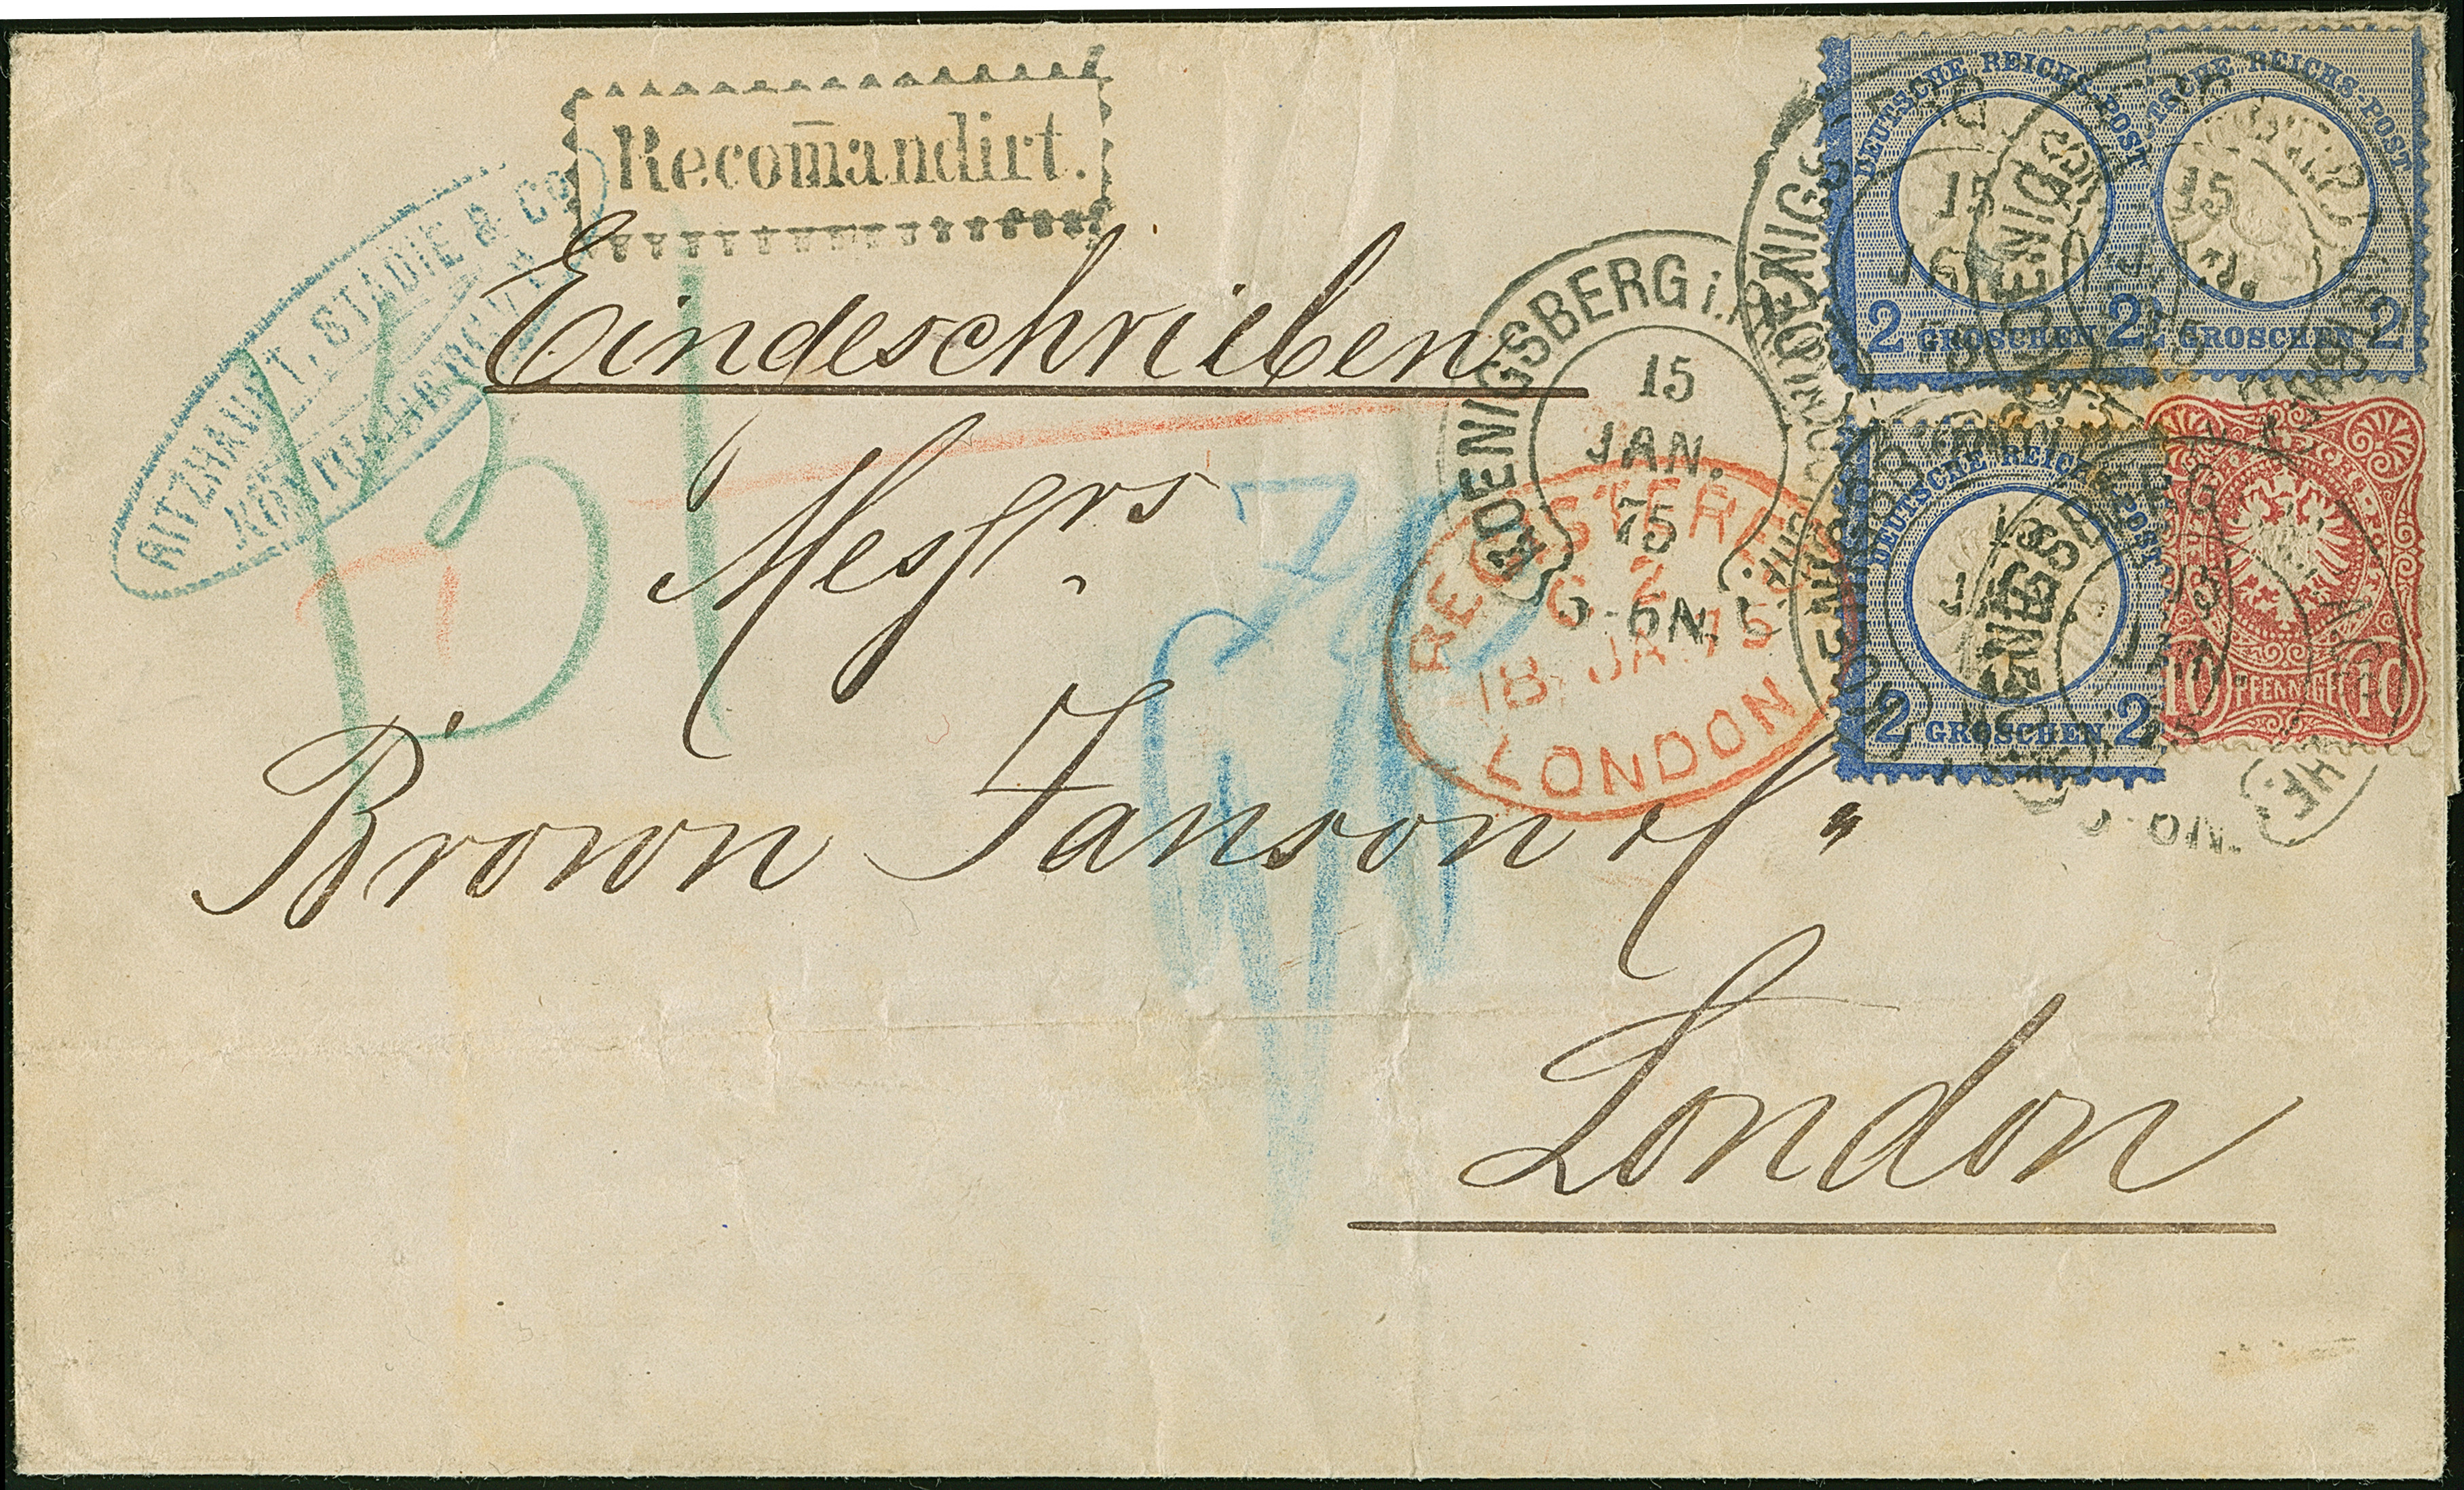 Recom̄andirt.
RITZHAUPT, STADIE & Co
KÖNIGSBERG
Eingeschrieben
Messrs
Brown Janson & C°
London
131
KOENIGSBERG i. PR.
15
JAN.
75
5-6N.
REGISTERED
18 JA 75
LONDON
DEUTSCHE REICHS-POST
2 GROSCHEN 2
DEUTSCHE REICHS-POST
2 GROSCHEN 2
DEUTSCHE REICHS-POST
2 GROSCHEN 2
10 PFENNIGE 10